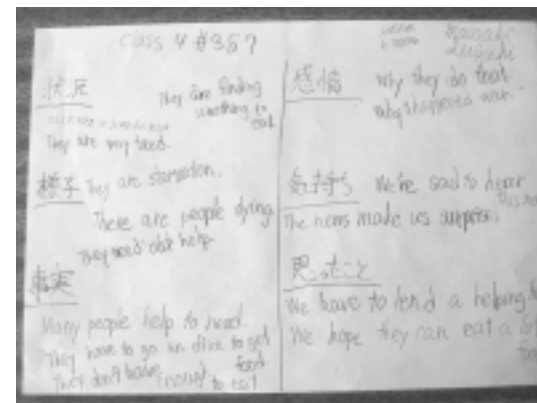 class 4 #367
状況
They are finding
something to
eat
They are very tired.
様子 They are starvation.
There are people dying
They need our help
事実
Many people help to need.
They have to go an dive to get
food.
They don't have enough to eat.
感情 Why they do that.
why happened war.
気持ち We're sad to hear
this
The news make us surprise.
思ったこと
We have to lend a helping
We hope they can eat a